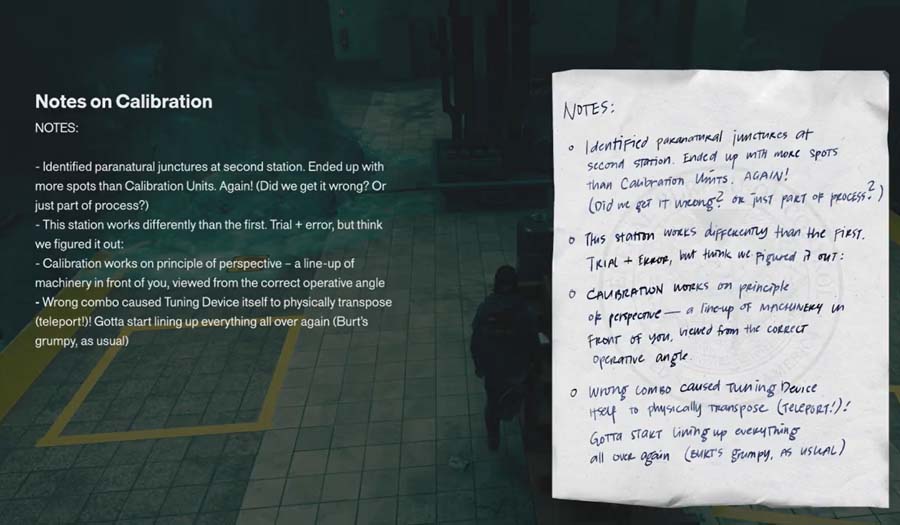 Notes on Calibration
NOTES:
- Identified paranatural junctures at second station. Ended up with
more spots than Calibration Units. Again! (Did we get it wrong? Or
just part of process?)
- This station works differently than the first. Trial + error, but think
we figured it out:
- Calibration works on principle of perspective – a line-up of
machinery in front of you, viewed from the correct operative angle
- Wrong combo caused Tuning Device itself to physically transpose
(teleport!)! Gotta start lining up everything all over again (Burt's
grumpy, as usual)
NOTES:
o Identified paranatural junctures at
second station. Ended up with more spots
than Calibration Units. AGAIN!
(Did we get it wrong? or just part of process?)
o This station works differently than the first.
TRIAL + ERROR, but think we figured it out:
o CALIBRATION works on principle
of perspective — a line-up of MACHINERY in
front of you, viewed from the correct
operative angle.
o Wrong combo caused Tuning Device
itself to physically transpose (TELEPORT!)!
Gotta start lining up everything
all over again (BURT'S grumpy, AS USUAL)